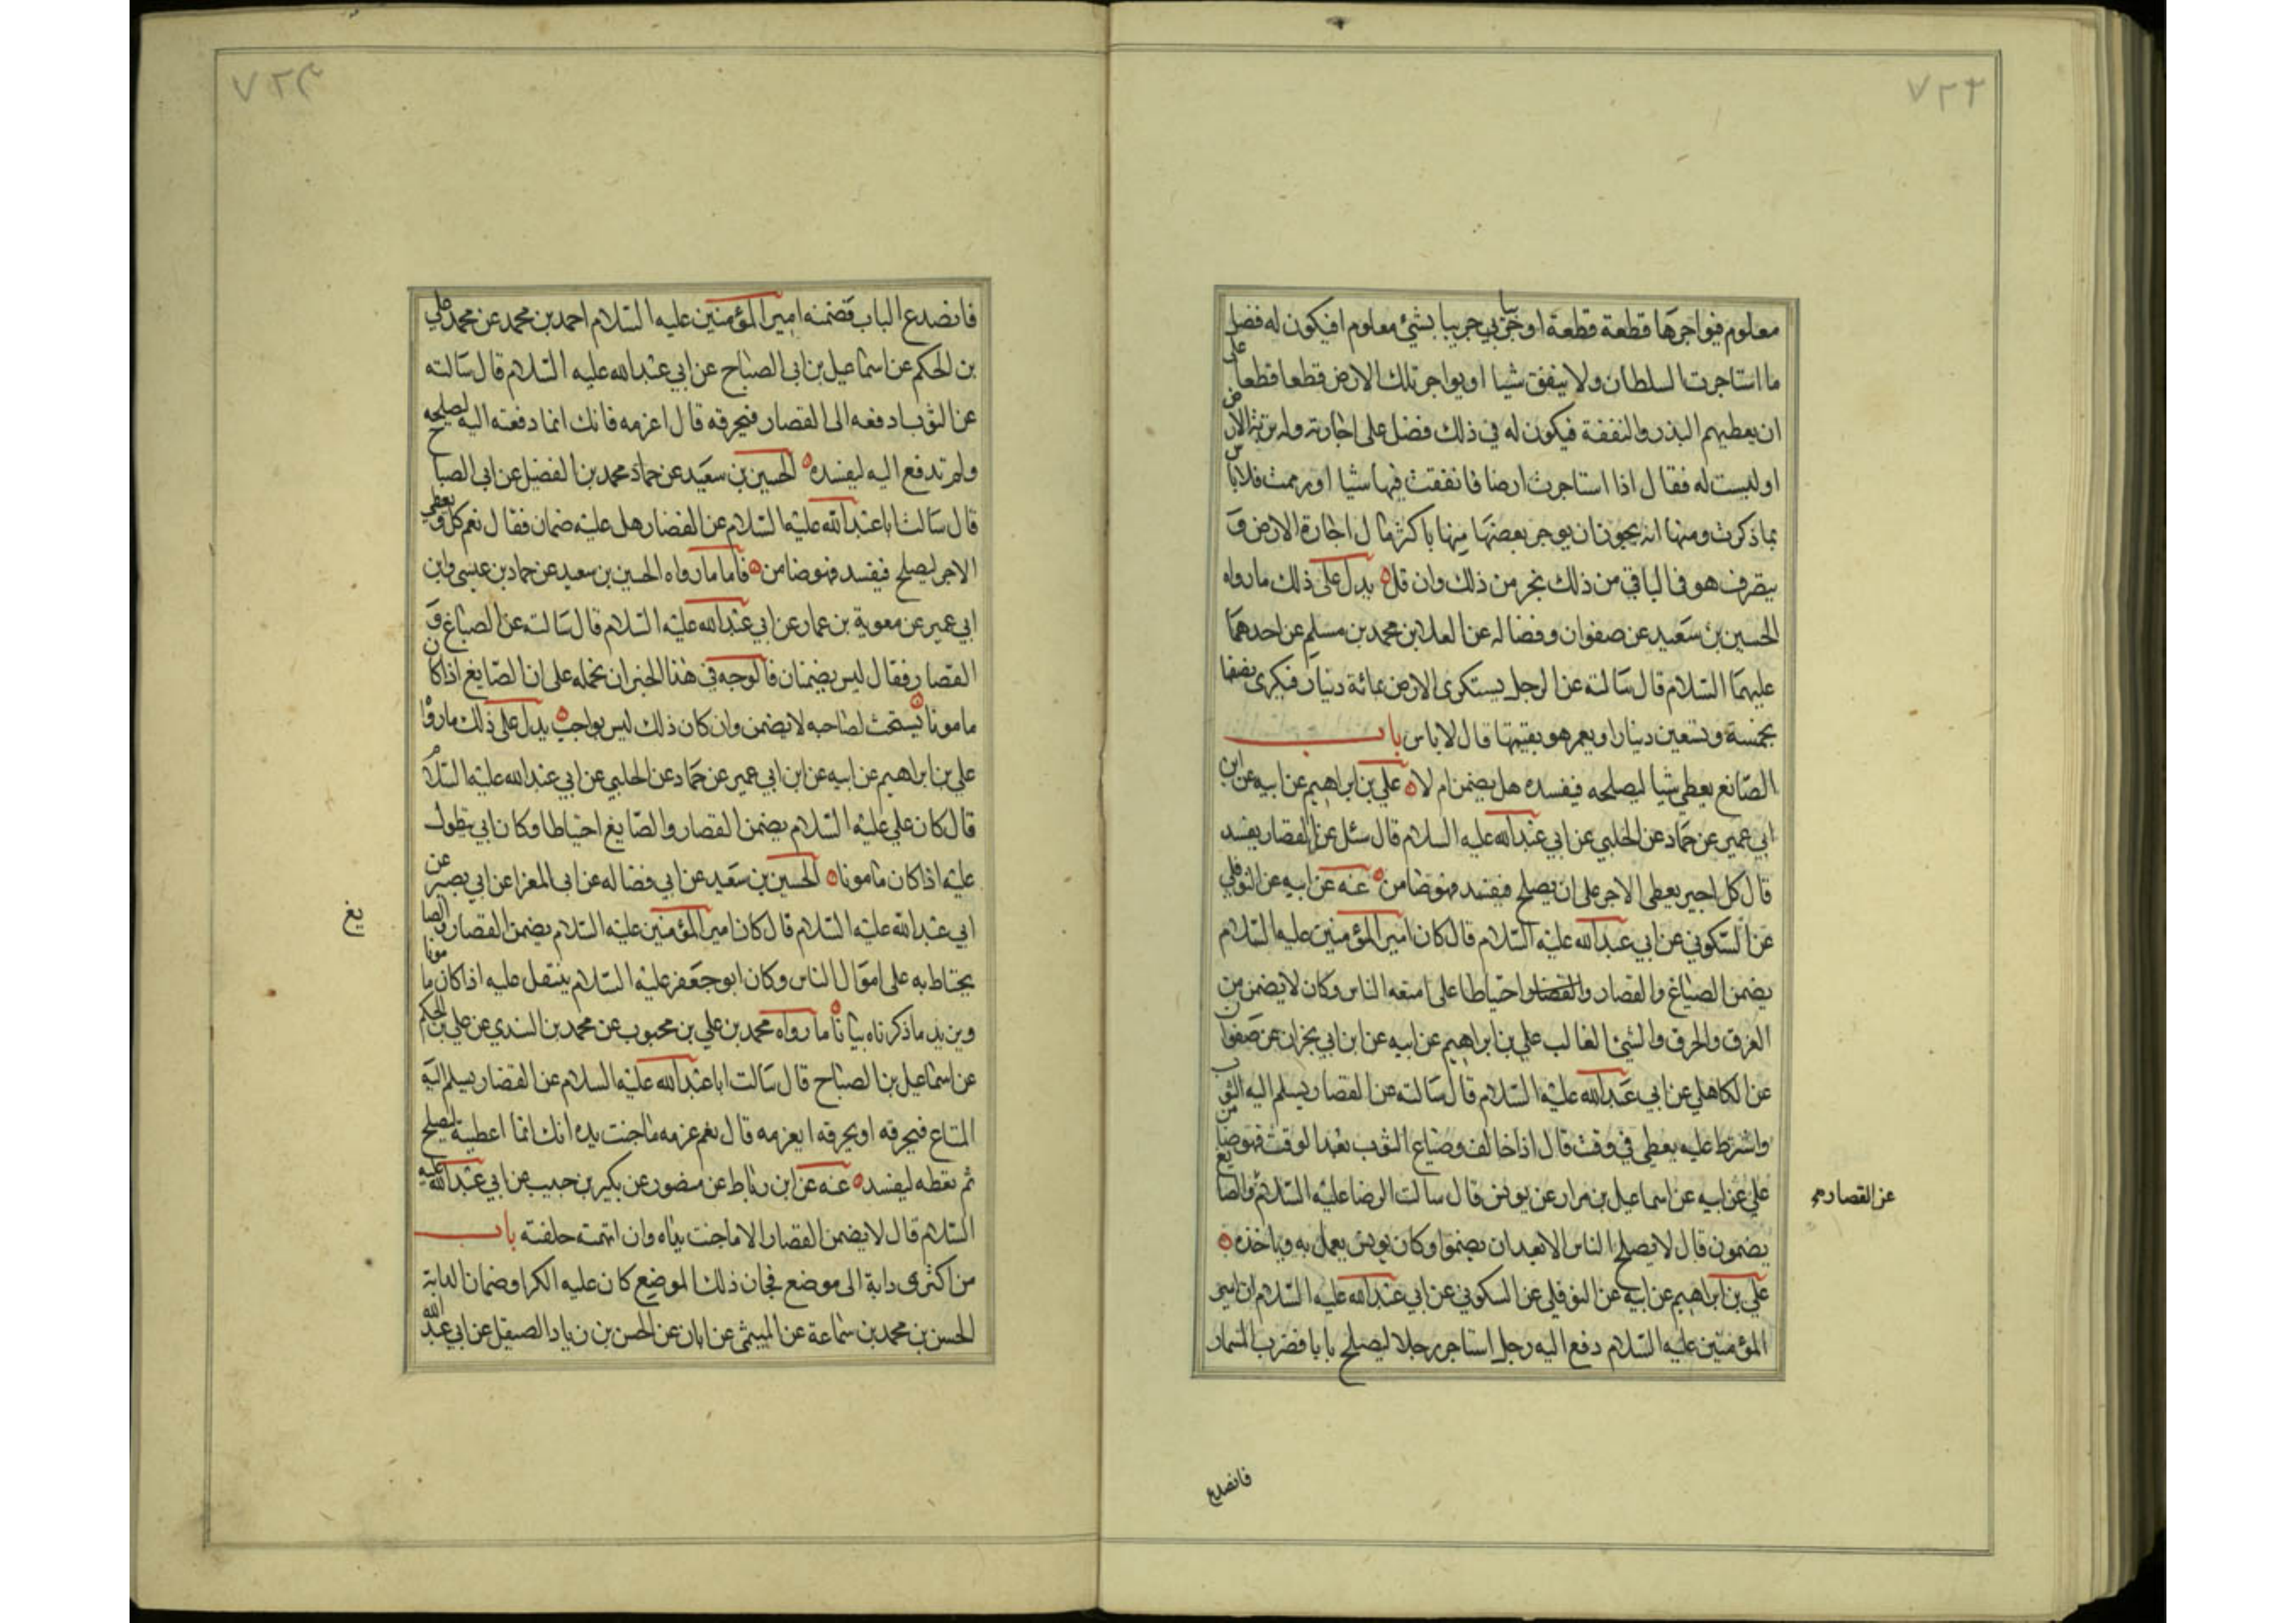 ٧٢٣
معلوم فيواجرها قطعة قطعة او جريبا جريبا بشئ معلوم افيكون له فضل
ما استاجرت السلطان ولا ينفق شيا او يواجر تلك الارض قطعا قطعا على
ان يعطيهم البذر والنفقة فيكون له في ذلك فضل على اجارته وله تربة الارض
او ليست له فقال اذا استاجرت ارضا فانفقت فيها شيا او رممت فلا باس
بما ذكرت ومنها انه يجوز ان يوجر بعضها منها باكثر مال اجارة الارض و
يتصرف هو في الباقي من ذلك بجزء من ذلك وان قل يدل على ذلك ما رواه
الحسين بن سعيد عن صفوان وفضاله عن العلا بن محمد بن مسلم عن احدهما
عليهما السلام قال سالته عن الرجل يستكرى الارض بمائة دينار فيكرى بضفها
بخمسة وتسعين دينارا ويعمر هو بقيتها قال لا باس باب
الصانع يعطى شيا ليصلحه فيفسده هل يضمن ام لا علي بن ابراهيم عن ابيه عن ابن
ابي عمير عن حماد عن الحلبي عن ابي عبدالله عليه السلام قال سئل عن القصار يفسد
قال كل اجير يعطى الاجر على ان يصلح فيفسد فهو ضامن عنه عن ابيه عن النوفلي
عن السكوني عن ابي عبدالله عليه السلام قال كان امير المؤمنين عليه السلام
يضمن الصباغ والقصار والقصار احتياطا على امتعه الناس وكان لا يضمن من
الغرق والحرق والشئ الغالب علي بن ابراهيم عن ابيه عن ابن ابي نجران عن صفوان
عن الكاهلي عن ابي عبدالله عليه السلام قال سالته عن القصار يسلم اليه الثوب
واشترط عليه يعطى في وقت قال اذا خالف وضاع الثوب بعد الوقت فهو ضامن
علي عن ابيه عن اسماعيل بن مرار عن يونس قال سالت الرضا عليه السلام والصايغ
عن القصار
يضمنون قال لا يصلح الناس الا بعد ان يضمنوا وكان يونس يعمل به وياخذه
علي بن ابراهيم عن ابيه عن النوفلي عن السكوني عن ابي عبدالله عليه السلام ان امير
المؤمنين عليه السلام دفع اليه رجل استاجر رجلا ليصلح بابا فضرب المسمار
فانصدع
٧٢٤
فانصدع الباب فضمنه امير المؤمنين عليه السلام احمد بن محمد عن محمد علي
بن الحكم عن اسماعيل بن ابى الصباح عن ابي عبدالله عليه السلام قال سالته
عن الثوب ادفعه الى القصار فيحرقه قال اغرمه فانك انما دفعته اليه ليصلحه
ولم تدفع اليه ليفسده الحسين بن سعيد عن حماد محمد بن الفضيل عن ابى الصبا
قال سالت ابا عبدالله عليه السلام عن القصار هل عليه ضمان فقال نعم كل من يعطى
الاجر ليصلح فيفسد فهو ضامن فاما ما رواه الحسين بن سعيد عن حماد بن عيسى وابن
ابي عمير عن معوية بن عمار عن ابي عبدالله عليه السلام قال سالته عن الصباغ و
القصار فقال ليس يضمنان فالوجه في هذا الخبر ان نحمله على ان الصايغ اذا كان
مامونا يستحب لصاحبه لا يضمن وان كان ذلك ليس بواجب يدل على ذلك ما رواه
علي بن ابراهيم عن ابيه عن ابن ابي عمير عن حماد عن الحلبي عن ابي عبدالله عليه السلام
قال كان علي عليه السلام يضمن القصار والصايغ احتياطا وكان ابي يتطول
عليه اذا كان مامونا الحسين بن سعيد عن ابي فضاله عن ابى المعزا عن ابي بصير عن
ابي عبدالله عليه السلام قال كان امير المؤمنين عليه السلام يضمن القصار والصا
يغ
يحتاط به على اموال الناس وكان ابو جعفر عليه السلام يتفضل عليه اذا كان مامونا
ويزيد ما ذكرناه بيانا ما رواه محمد بن علي بن محبوب عن محمد بن السندي عن علي بن الحكم
عن اسماعيل بن الصباح قال سالت ابا عبدالله عليه السلام عن القصار يسلم اليه
المتاع فيحرقه او يحرقه ايغرمه قال نعم غرمه ما جنت يده انك انما اعطيته ليصلح
ثم تعطه ليفسد عنه عن ابن رباط عن منصور عن بكير بن حبيب عن ابي عبدالله عليه
السلام قال لا يضمن القصار الا ما جنت يداه وان اتهمته حلفته باب
من اكترى دابة الى موضع فجاز ذلك الموضع كان عليه الكرا وضمان الدابة
الحسن بن محمد بن سماعة عن الميثمي عن ابان عن الحسن بن زياد الصيقل عن ابي عبدالله